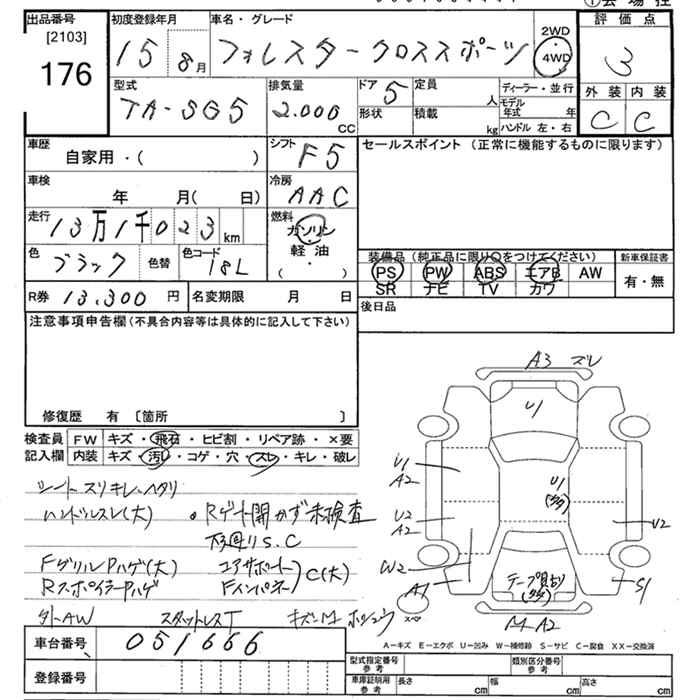 出品番号 初度登録年月 車名・グレード 評価点
[2103] 176 15 8月 フォレスタークロススポーツ 2WD 4WD 3
型式 排気量 ドア 定員 ディーラー・並行 外装 内装
TA-SG5 2.000 CC 5 人 モデル年式 年 C C
形状 積載 kg ハンドル 左・右
車歴 シフト セールスポイント (正常に機能するものに限ります)
自家用・( ) F5
車検 冷房
年 月( 日) AAC
走行 燃料
13万1千023km ガソリン
軽油
( ・ )
色 色替 色コード
ブラック 18L
装備品 (純正品に限り○をつけてください) 新車保証書
PS PW ABS エアB AW 有・無
SR ナビ TV カワ
R券 13.300円 名変期限 月 日 後日品
注意事項申告欄 (不具合内容等は具体的に記入して下さい)
修復歴 有 〔箇所 〕
検査員 FW キズ・飛石・ヒビ割・リペア跡・×要
記入欄 内装 キズ・汚レ・コゲ・穴・スレ・キレ・破レ
シートスリキレ・ヘタリ
ハンドルスレ(大) ・Rゲート開かず未検査
下廻りS.C
Fグリルハゲ(大) コアサポート
RスポイラーハゲFインパネ C(大)
外AW スタットレスT キズ・凹 ホシュウ
A3 ズレ
U1
U1
A2
U1
(多)
U2
A2
U2
W2
A1
テープ貝占り
(多)
S1
A2
車台番号 051666
登録番号
A－キズ E－エクボ U－凹み W－補修跡 S－サビ C－腐食 XX－交換済
型式指定番号 参考 類別区分番号 参考
車庫証明用 参考 長さ cm 幅 cm 高さ cm